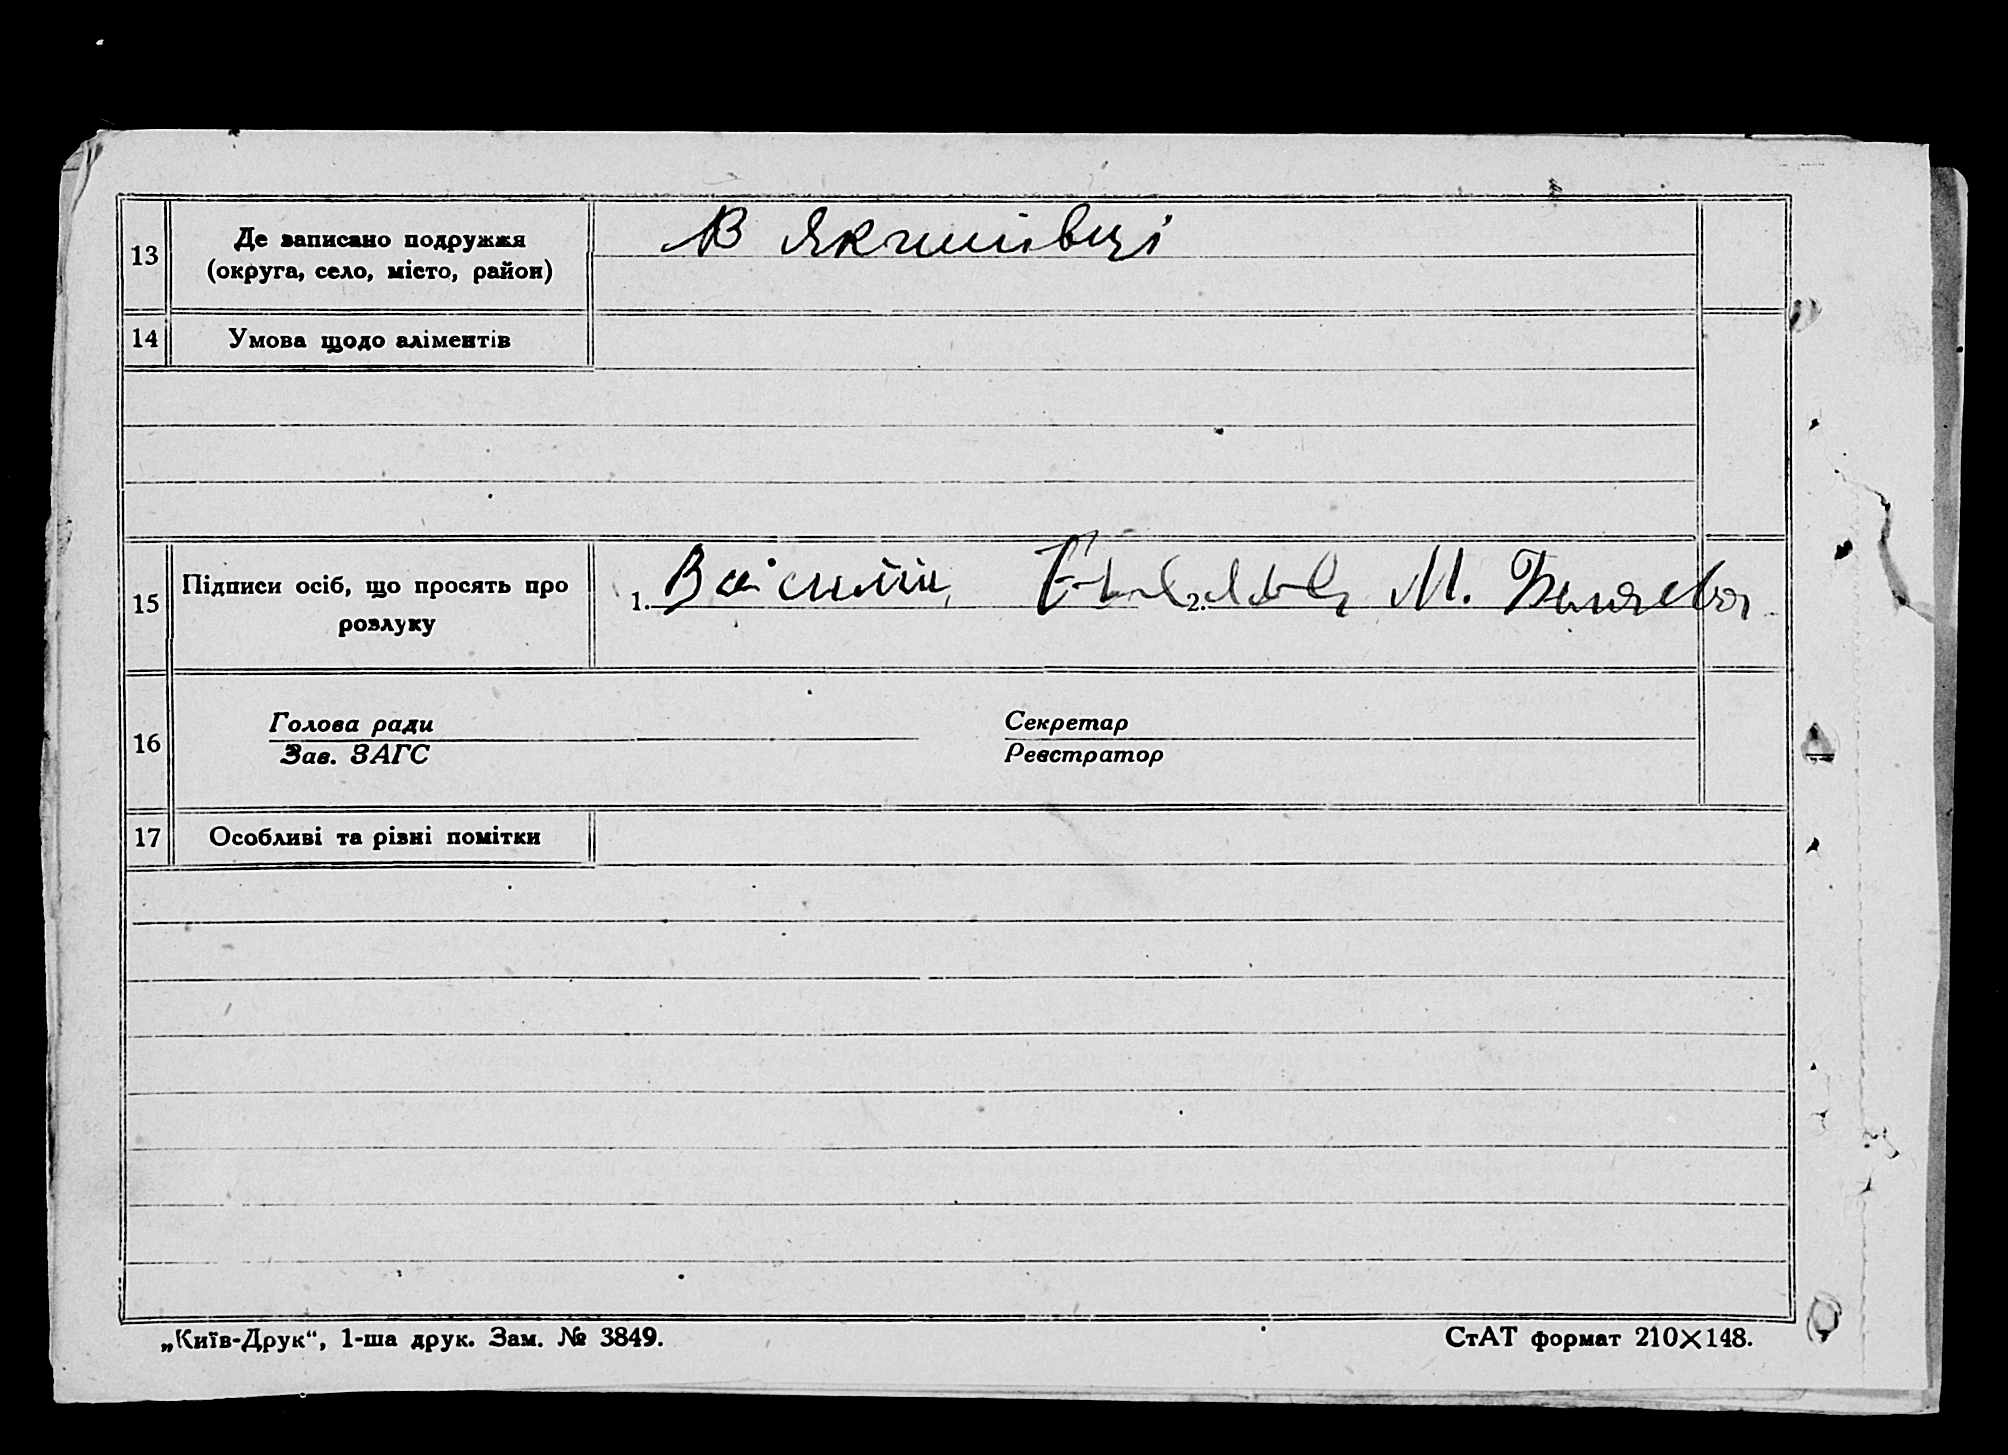 13 Де записано подружжя
(округа, село, місто, район)
В Якимівці
14 Умова щодо аліментів
15 Підписи осіб, що просять про
розлуку
1. 2. М. Беляева
16 Голова ради
Зав. ЗАГС
Секретар
Реєстратор
17 Особливі та різні помітки
„Київ-Друк“, 1-ша друк. Зам. № 3849.
СтАТ формат 210×148.